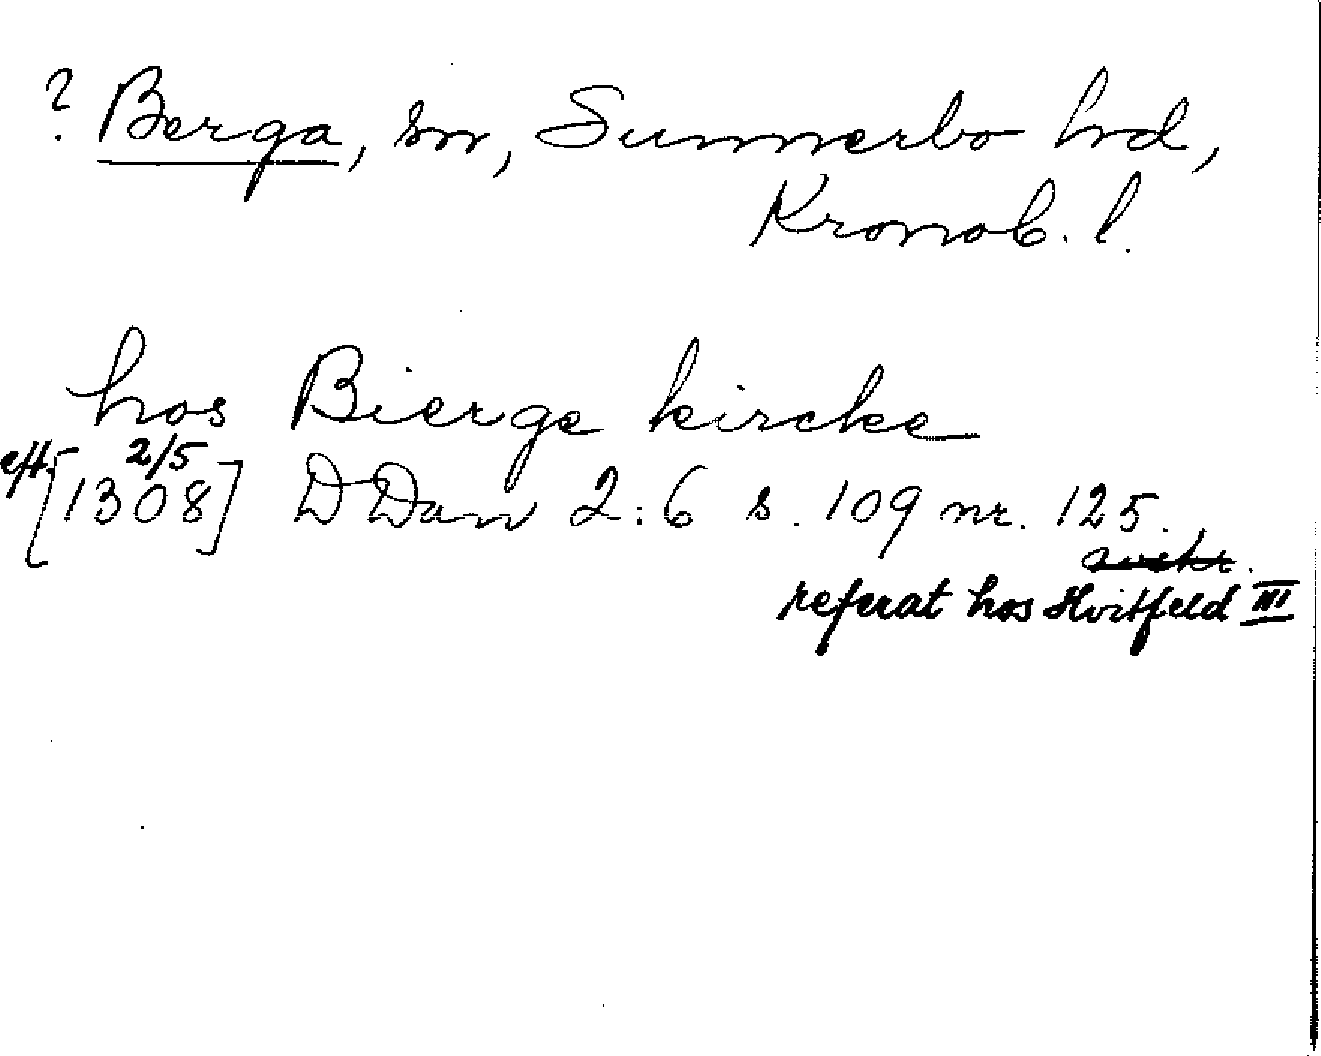 ? Berga, sn, Sunnerbo hd,
Kronob. l.
hos Bierge kircke
eft. 2/5
[1308] DDan 2:6 s. 109 nr. 125.
avskr.
referat hos Hvitfeld III